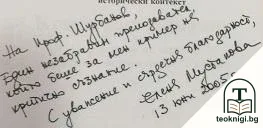 исторически контекст
На проф. Шурбанов,
Един незабравим преподавател,
който беше за мен пример на
критично съзнание.
С уважение и сърдечна благодарност,
Елена Мутафова
13 юни 2005г.
teoknigi.bg